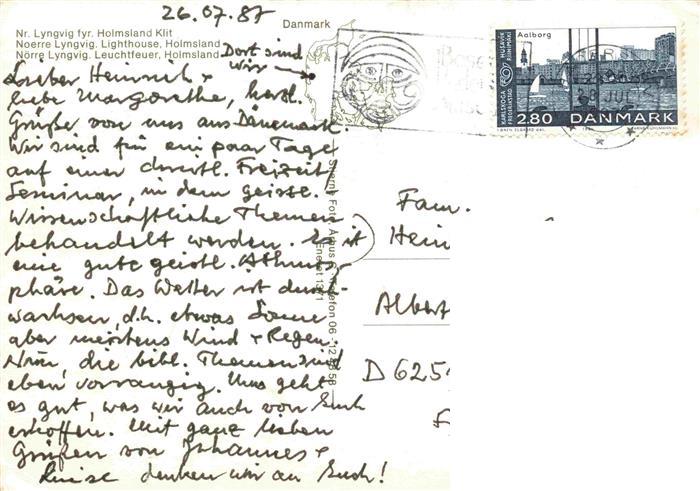 26.07.87
Danmark
Nr. Lyngvig fyr. Holmsland Klit
Noerre Lyngvig. Lighthouse, Holmsland
Nörre Lyngvig. Leuchtfeuer, Holmsland
Dort sind
wir
Lieber Heinrich +
liebe Margarethe, herzl.
Grüße von uns aus Dänemark.
Wir sind für ein paar Tage
auf einer christl. Freizeit
Seminar, in dem geistl.
Wissenschaftliche Themen
behandelt werden. Es ist
eine gute geistl. Athmos-
phäre. Das Wetter ist durch-
wachsen, d.h. etwas Sonne
aber meistens Wind + Regen.
Nun, die bibl. Themen sind
eben vorrangig. Uns geht
es gut, was wir auch von Euch
erhoffen. Mit ganz lieben
Grüßen von Johannes +
Luise denken wir an Euch!
Stjerne Foto, Århus
Telefon 06 - 12
Eneret 1371
Aalborg
HUSAVIK
RIIHIMÄKI
KARLSKOGA
FREDERIKSTAD
280 DANMARK
Fam.
Hein
Albert
D 625